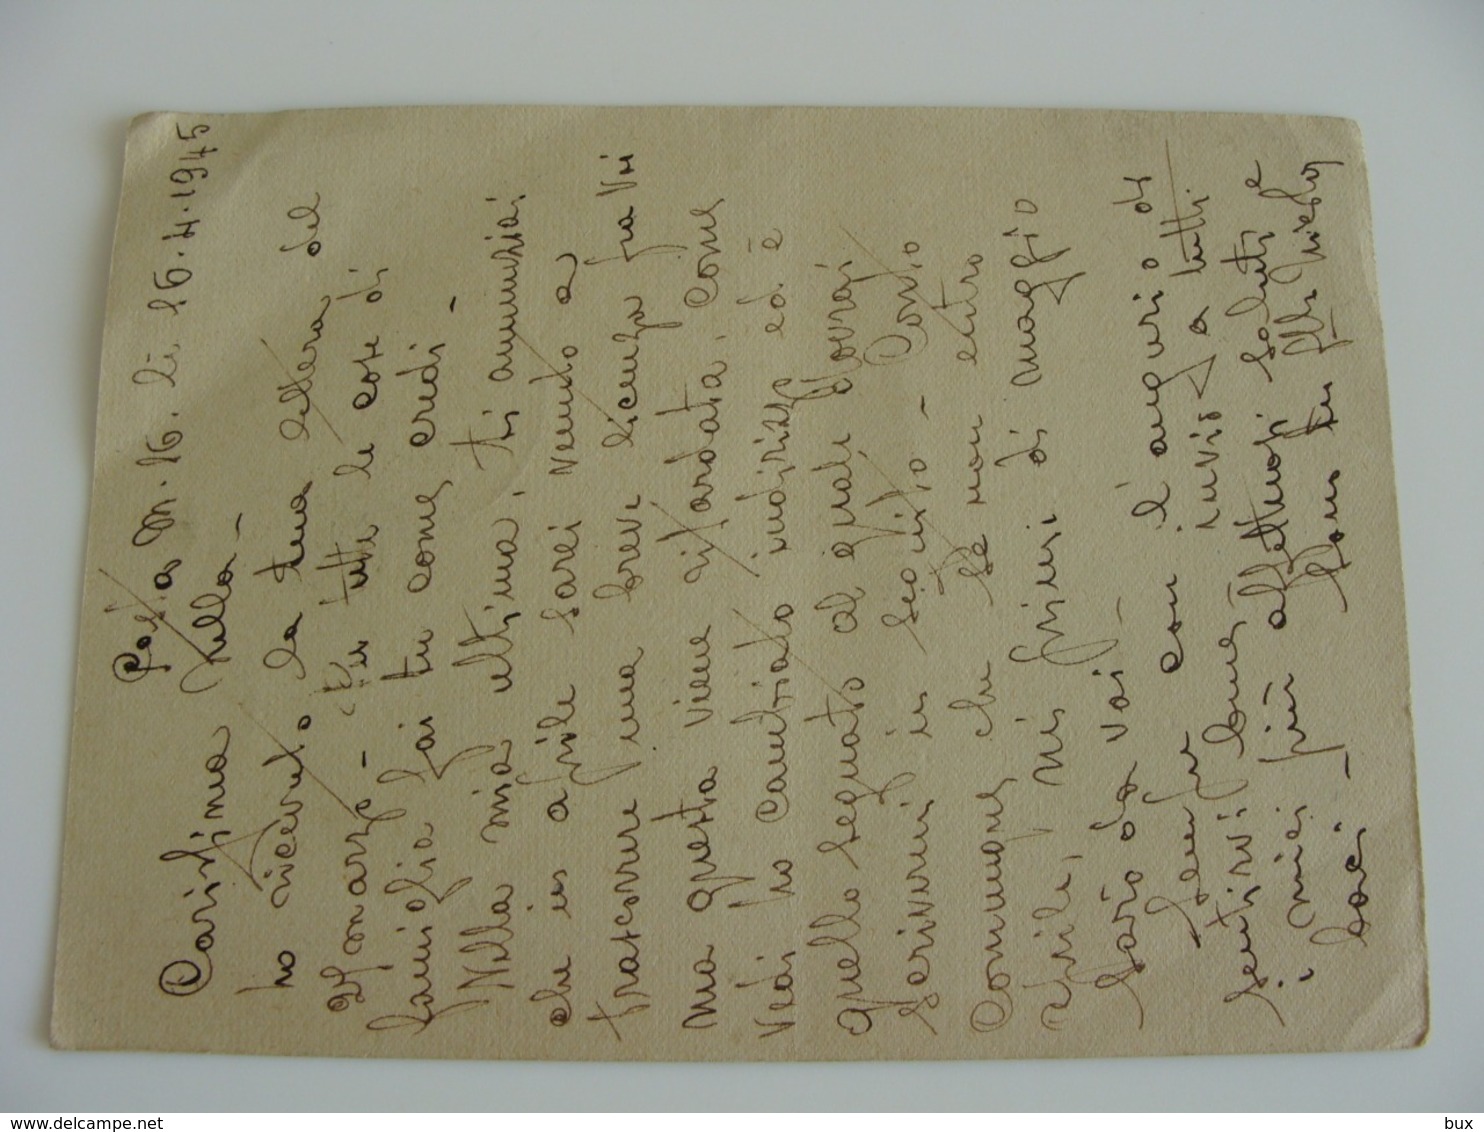 Posta M. 16. li 16.4.1945
Carissima Nella -
ho ricevuto la tua lettera del
marzo - tutte le cose di
famiglia fai tu come credi -
Nella mia ultima, ti annunziai
che in aprile sarei venuto a
trascorrere una breve licenza fra Voi
ma questa viene ritardata, come
vedi ho cambiato indirizzo ed è
quello segnato al quale dovrai
scrivermi in seguito - Conto
comunque che se non entro
Aprile, ai primi di maggio
sarò da voi -
con l'augurio di
sentirvi bene invio a tutti
i miei più affettuosi saluti e
baci -
www.delcampe.net
bux